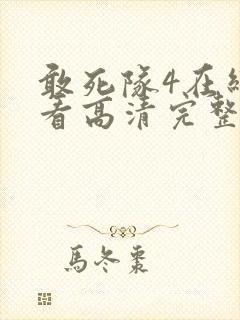 敢死隊4在線
看高清完整
馬冬棗